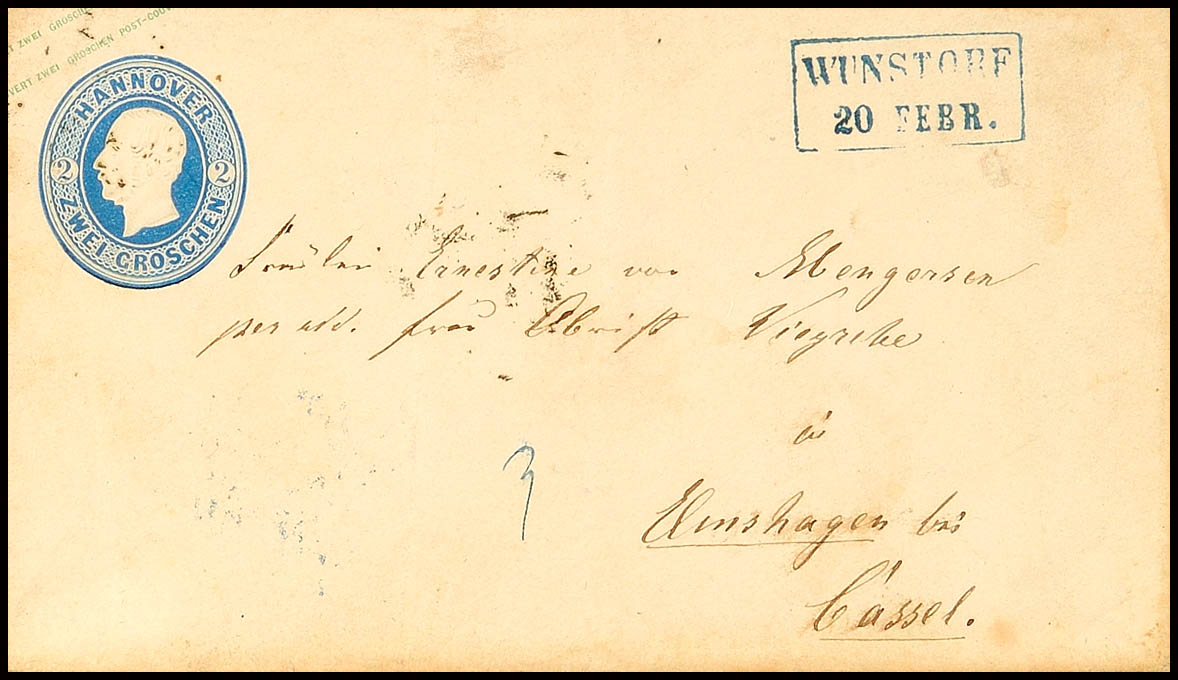 VERT ZWEI GROSCHEN
VERT ZWEI GROSCHEN POST-COUV
HANNOVER
2 2
ZWEI GROSCHEN
WUNSTORF
20 FEBR.
Fräulein Ernestine von Mengersen
per add. Frau Obrist Viegrebe
in
Elmshagen bei
Cassel.